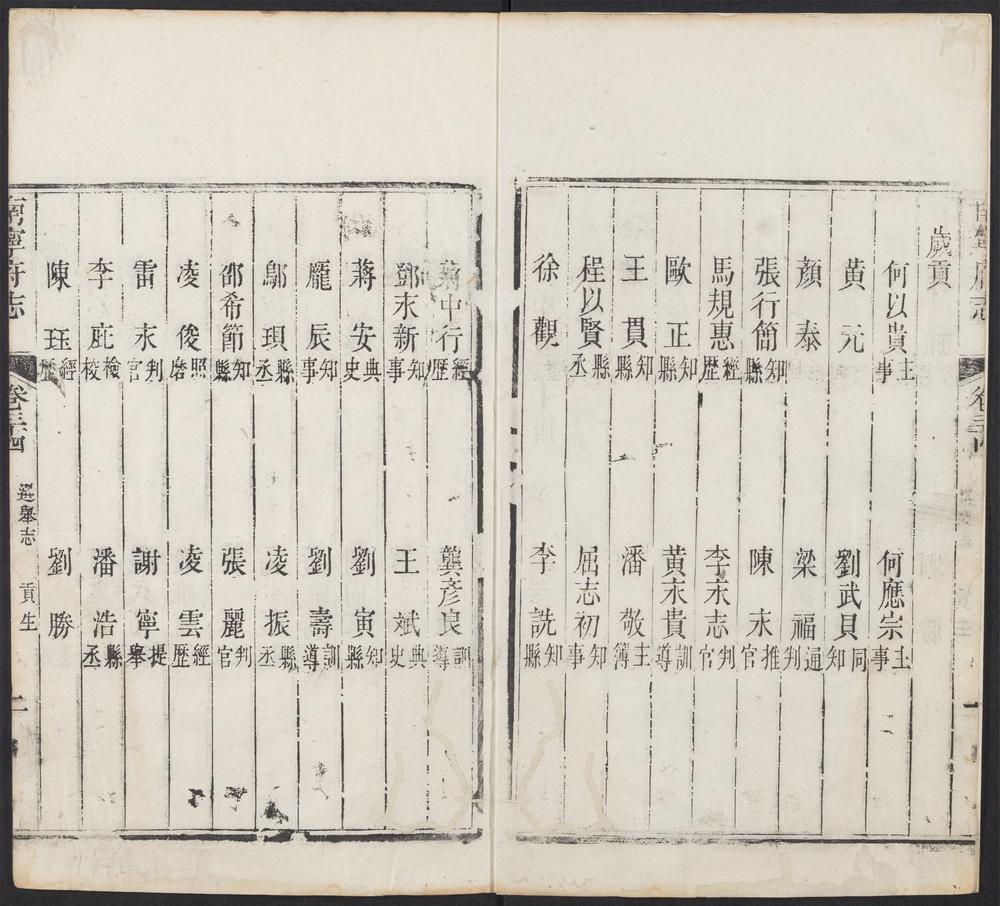 南寧府志 卷三十四 一
歲貢
何以貴 主事 何應宗 主事
黃元 劉武貝 同知
顏泰 梁福 通判
張行簡 知縣 陳永 推官
馬規惠 經歷 李永志 判官
歐正 知縣 黃永貴 訓導
王貫 知縣 潘敬 主簿
程以賢 縣丞 屈志初 知事
徐觀 李詵 知縣
蔣中行 經歷 龔彥良 訓導
鄧永新 知事 王斌 典史
蔣安 典史 劉寅 知縣
龐辰 知事 劉壽 訓導
鄔 縣丞 凌振 縣丞
邵希節 知縣 張麗 判官
凌俊 照磨 凌雲 經歷
雷永 判官 謝寧 提舉
李庇 檢校 潘浩 縣丞
陳珏 經歷 劉勝
南寧府志 卷三十四 選舉志 貢生 二